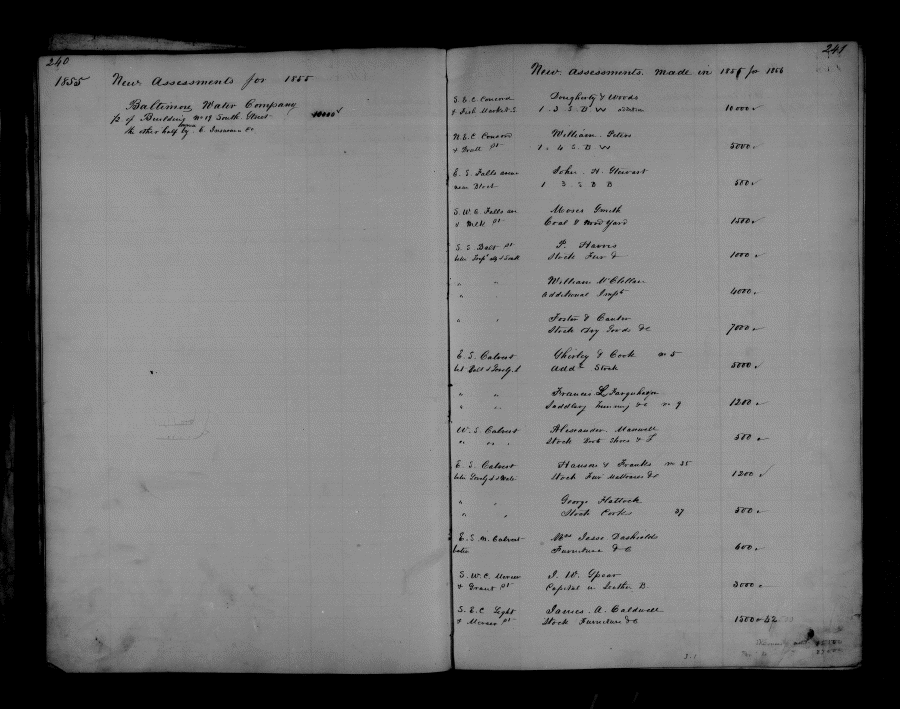 240
1855 New Assessments for 1855
Baltimore Water Company
½ of Building No 19 South Street 10000
the other half by Insurance Co.
241
New Assessments made in 1855 for 1856
S. E. C. Concord Dougherty & Woods
& Fish Market S 1. 3 S. B W 10000
N. E. C Concord William
& Pratt St 1. 4 S. B W 5000
E. S. Falls John H. Stewart
near Block 1 3 S B B 500
S. W. C Falls av Moses Smith
& Milk St Coal & Wood Yard 1500
S. S. Balt St P. Harris
Stock Fur & 1000
" " William McClellan
" " Additional Impts 4000
" " Foster & Canter
Stock Dry Goods &c 7000
E. S. Calvert Shirley & Cook No 5
bet Balt & Lovely L Addl Stock 5000
" " Francis L Farquharson
" " Saddlery Trimmg &c No 9 1200
W. S. Calvert Alexander Maxwell
" " " Stock Boots Shoes & 500
E. S. Calvert Hanson & Franks No 35
betw Lovely L & Stock Fur Mattrasses &c 1200
" " George Hattock
" " Stock Corks 37 500
E. S. N. Calvert Mrs Jesse Dashields
Furniture &c 600
S. W. C. Mercer I. W. Spear
& Grant St Capital in Leather B. 3000
S. E. C Light James. A. Caldwell
& Mercer St Stock Furniture &c 1500